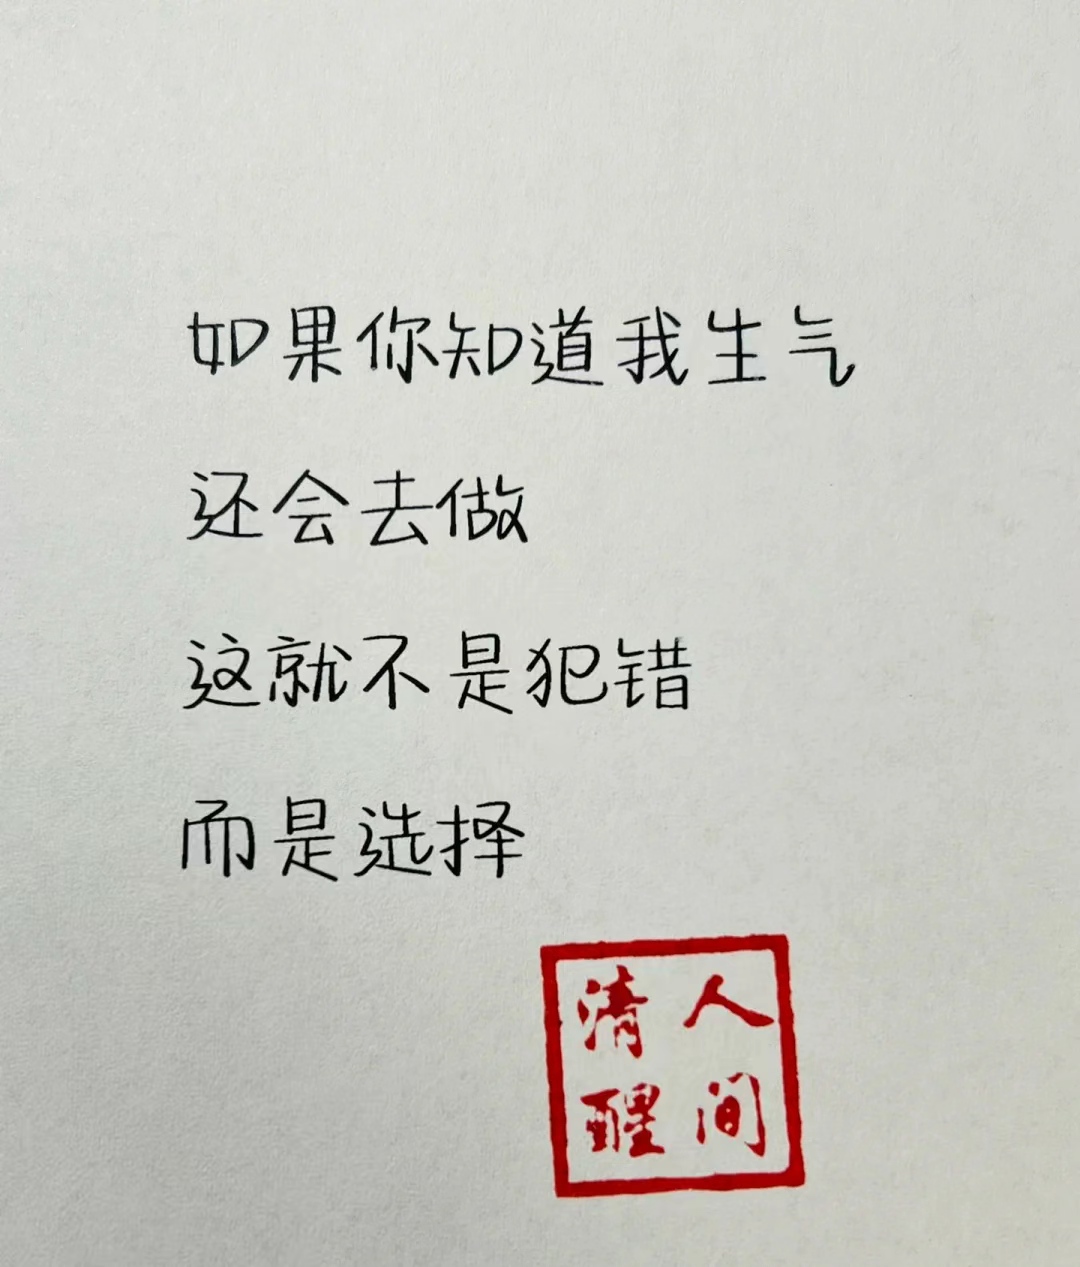 如果你知道我生气
还会去做
这就不是犯错
而是选择
人间
清醒